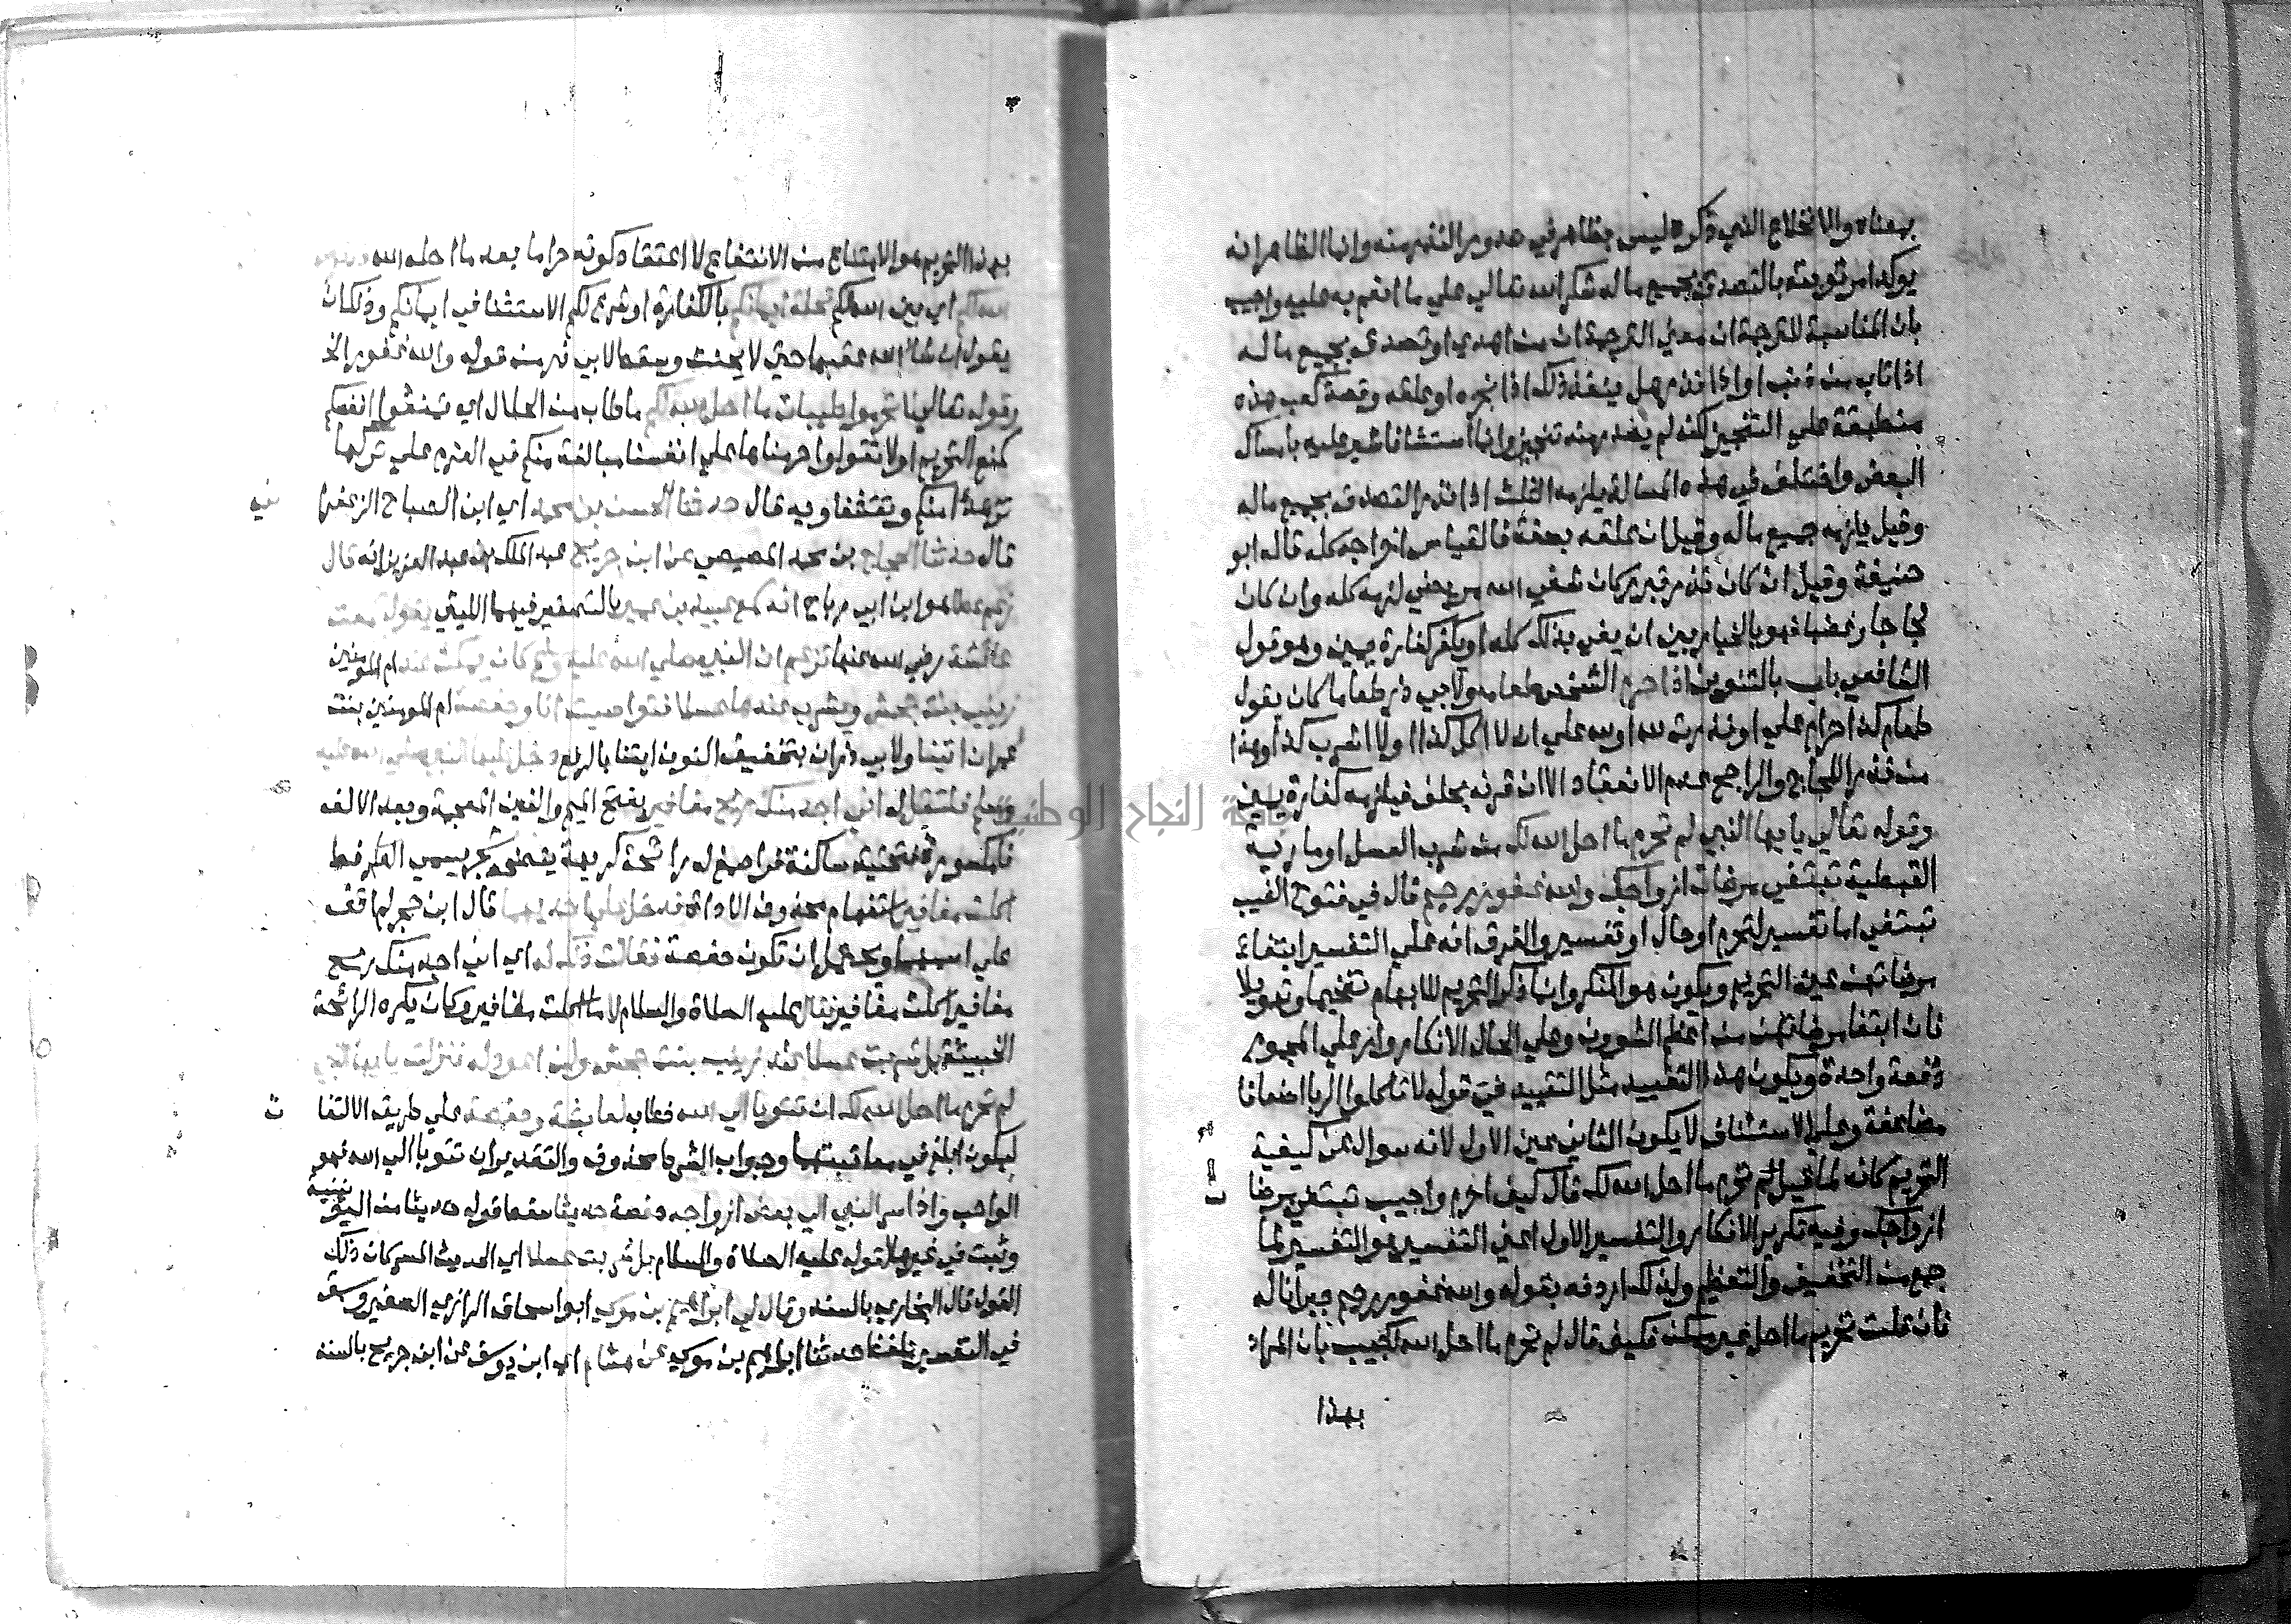 بمعناه والانخلاع الذي ذكره ليس بظاهر في صدور النذر منه وانما الظاهر انه
يوكد امر توبته بالتصدق بجميع ماله شكر الله تعالي علي ما انعم به عليه واجيب
بان المناسبة للترجمة ان معني الترجمة ان من اهدي او تصدق بجميع ماله
اذا تاب من ذنب او اذا نذر هل ينفذ ذلك اذا نجزه او علقه وقصة كعب هذه
منطبقة علي التنجيز لكنه لم يصدر منه تنجيز وانما استشار فاشير عليه بامساك
البعض واختلف في هذه المسالة يلزمه الثلث اذا نذر التصدق بجميع ماله
وقيل يلزمه جميع ماله وقيل ان علقه بصفة فالقياس اخراجه كله قاله ابو
حنيفة وقيل ان كان نذر تبرر كان شفي الله مريضي لزمه كله وان كان
لجاجا وغضبا فهو بالخيار بين ان يفي بذلك كله او يكفر كفارة يمين وهو قول
الشافعي باب بالتنوين اذا حرم الشخص طعامه ولابي ذر طعاما كان يقول
طعام كذا حرام علي او نذرت لله او لله علي ان لا اكل كذا او لا اشرب كذا وهذا
من نذر اللجاج والراجح عدم الانعقاد الا ان قرنه بحلف فيلزمه كفارة يمين
وقوله تعالي يا يها النبي لم تحرم ما احل الله لك من شرب العسل او مارية
القبطية تبتغي مرضات ازواجك والله غفور رحيم قال في فتوح الغيب
تبتغي اما تفسير لتحرم او حال او تفسير والفرق انه علي التفسير ابتغاء
مرضاتهن عين التحريم ويكون هو المنكر وانما ذكر التحريم للابهام تفخيما وتهويلا
فان ابتغا مرضاتهن من اعظم الشوون وعلي الحال الانكار وارد علي المجموع
دفعة واحدة ويكون هذا التقييد مثل التقييد في قوله لا تاكلوا الربا اضعافا
مضاعفة وعلي الاستئناف لا يكون الثاني عين الاول لانه سوال عن كيفية
التحريم كانه لما قيل لم تحرم ما احل الله لك قال كيف احرم واجيب تبتغي مرضات
ازواجك وفيه تكرير الانكار والتفسير الاول اعني التفسير هو التفسير لما
جمع من التخفيف والتعظيم ولذلك اردفه بقوله والله غفور رحيم جبرانا له
فان قلت تحريم ما احل غير ممكن فكيف قال لم تحرم ما احل الله لك اجيب بان المراد
بهذا
بهذا التحريم هو الامتناع من الانتفاع لا اعتقاد كونه حراما بعد ما احله الله
الله لكم اي بين الله لكم تحلة ايمانكم بالكفارة او شرع لكم الاستثنا في ايمانكم وذلك ان
يقول ان شا الله عقبها حتي لا يحنث وسقط لابي ذر من قوله والله غفور الخ
وقوله تعالي لا تحرموا طيبات ما احل الله لكم ما طاب من الحلال اي تمنعوا انفسكم
كمنع التحريم او لا تقولوا حرمناها علي انفسنا مبالغة منكم في العزم علي تركها
تزهدا منكم وتقشفا وبه قال حدثنا الحسن بن محمد اي ابن الصباح الزعفراني
قال حدثنا الحجاج بن محمد المصيصي عن ابن جريج عبد الملك بن عبد العزيز انه قال
زعم عطا هو ابن ابي رباح انه سمع عبيد بن عمير بالتصغير فيهما الليثي يقول سمعت
عائشة رضي الله عنها تزعم ان النبي صلي الله عليه وسلم كان يمكث عند ام المومنين
زينب بنت جحش ويشرب عندها عسلا فتواصيت انا وحفصة ام المومنين بنت
عمر ان ايتنا ولابي ذر ان بتخفيف النون ايتنا بالرفع دخل عليها النبي صلي الله عليه
وسلم فلتقل له اني اجد منك ريح مغافير بفتح الميم والغين المعجمة وبعد الالف
فا مكسورة فتحتية ساكنة فرا صمغ له رائحة كريهة ينضحه شجر يسمي العرفط
اكلت مغافير استفهام محذوف الاداة فدخل علي احديهما قال ابن حجر لم اقف
علي اسمها ويحتمل ان تكون حفصة فقالت ذلك له اي اني اجد منك ريح
مغافير اكلت مغافير فقال عليه الصلاة والسلام لا ما اكلت مغافير وكان يكره الرائحة
الخبيثة بل شربت عسلا عند زينب بنت جحش ولن اعود له فنزلت يا يها النبي
لم تحرم ما احل الله لك ان تتوبا الي الله خطاب لعائشة وحفصة علي طريقه الالتفات
ليكون ابلغ في معاتبتهما وجواب الشرط محذوف والتقدير ان تتوبا الي الله فهو
الواجب واذ اسر النبي الي بعض ازواجه حفصة حديثا سقط قوله حديثا من اليونينية
وثبت في غيرها لقوله عليه الصلاة والسلام بل شربت عسلا اي الحديث المسر كان ذلك
القول قال البخاري بالسند وقال لي ابراهيم بن موسي ابو اسحاق الرازي الصغير وسبق
في التفسير بلفظ حدثنا ابراهيم بن موسي عن هشام اي ابن يوسف عن ابن جريج بالسند
جامعة النجاح الوطنية